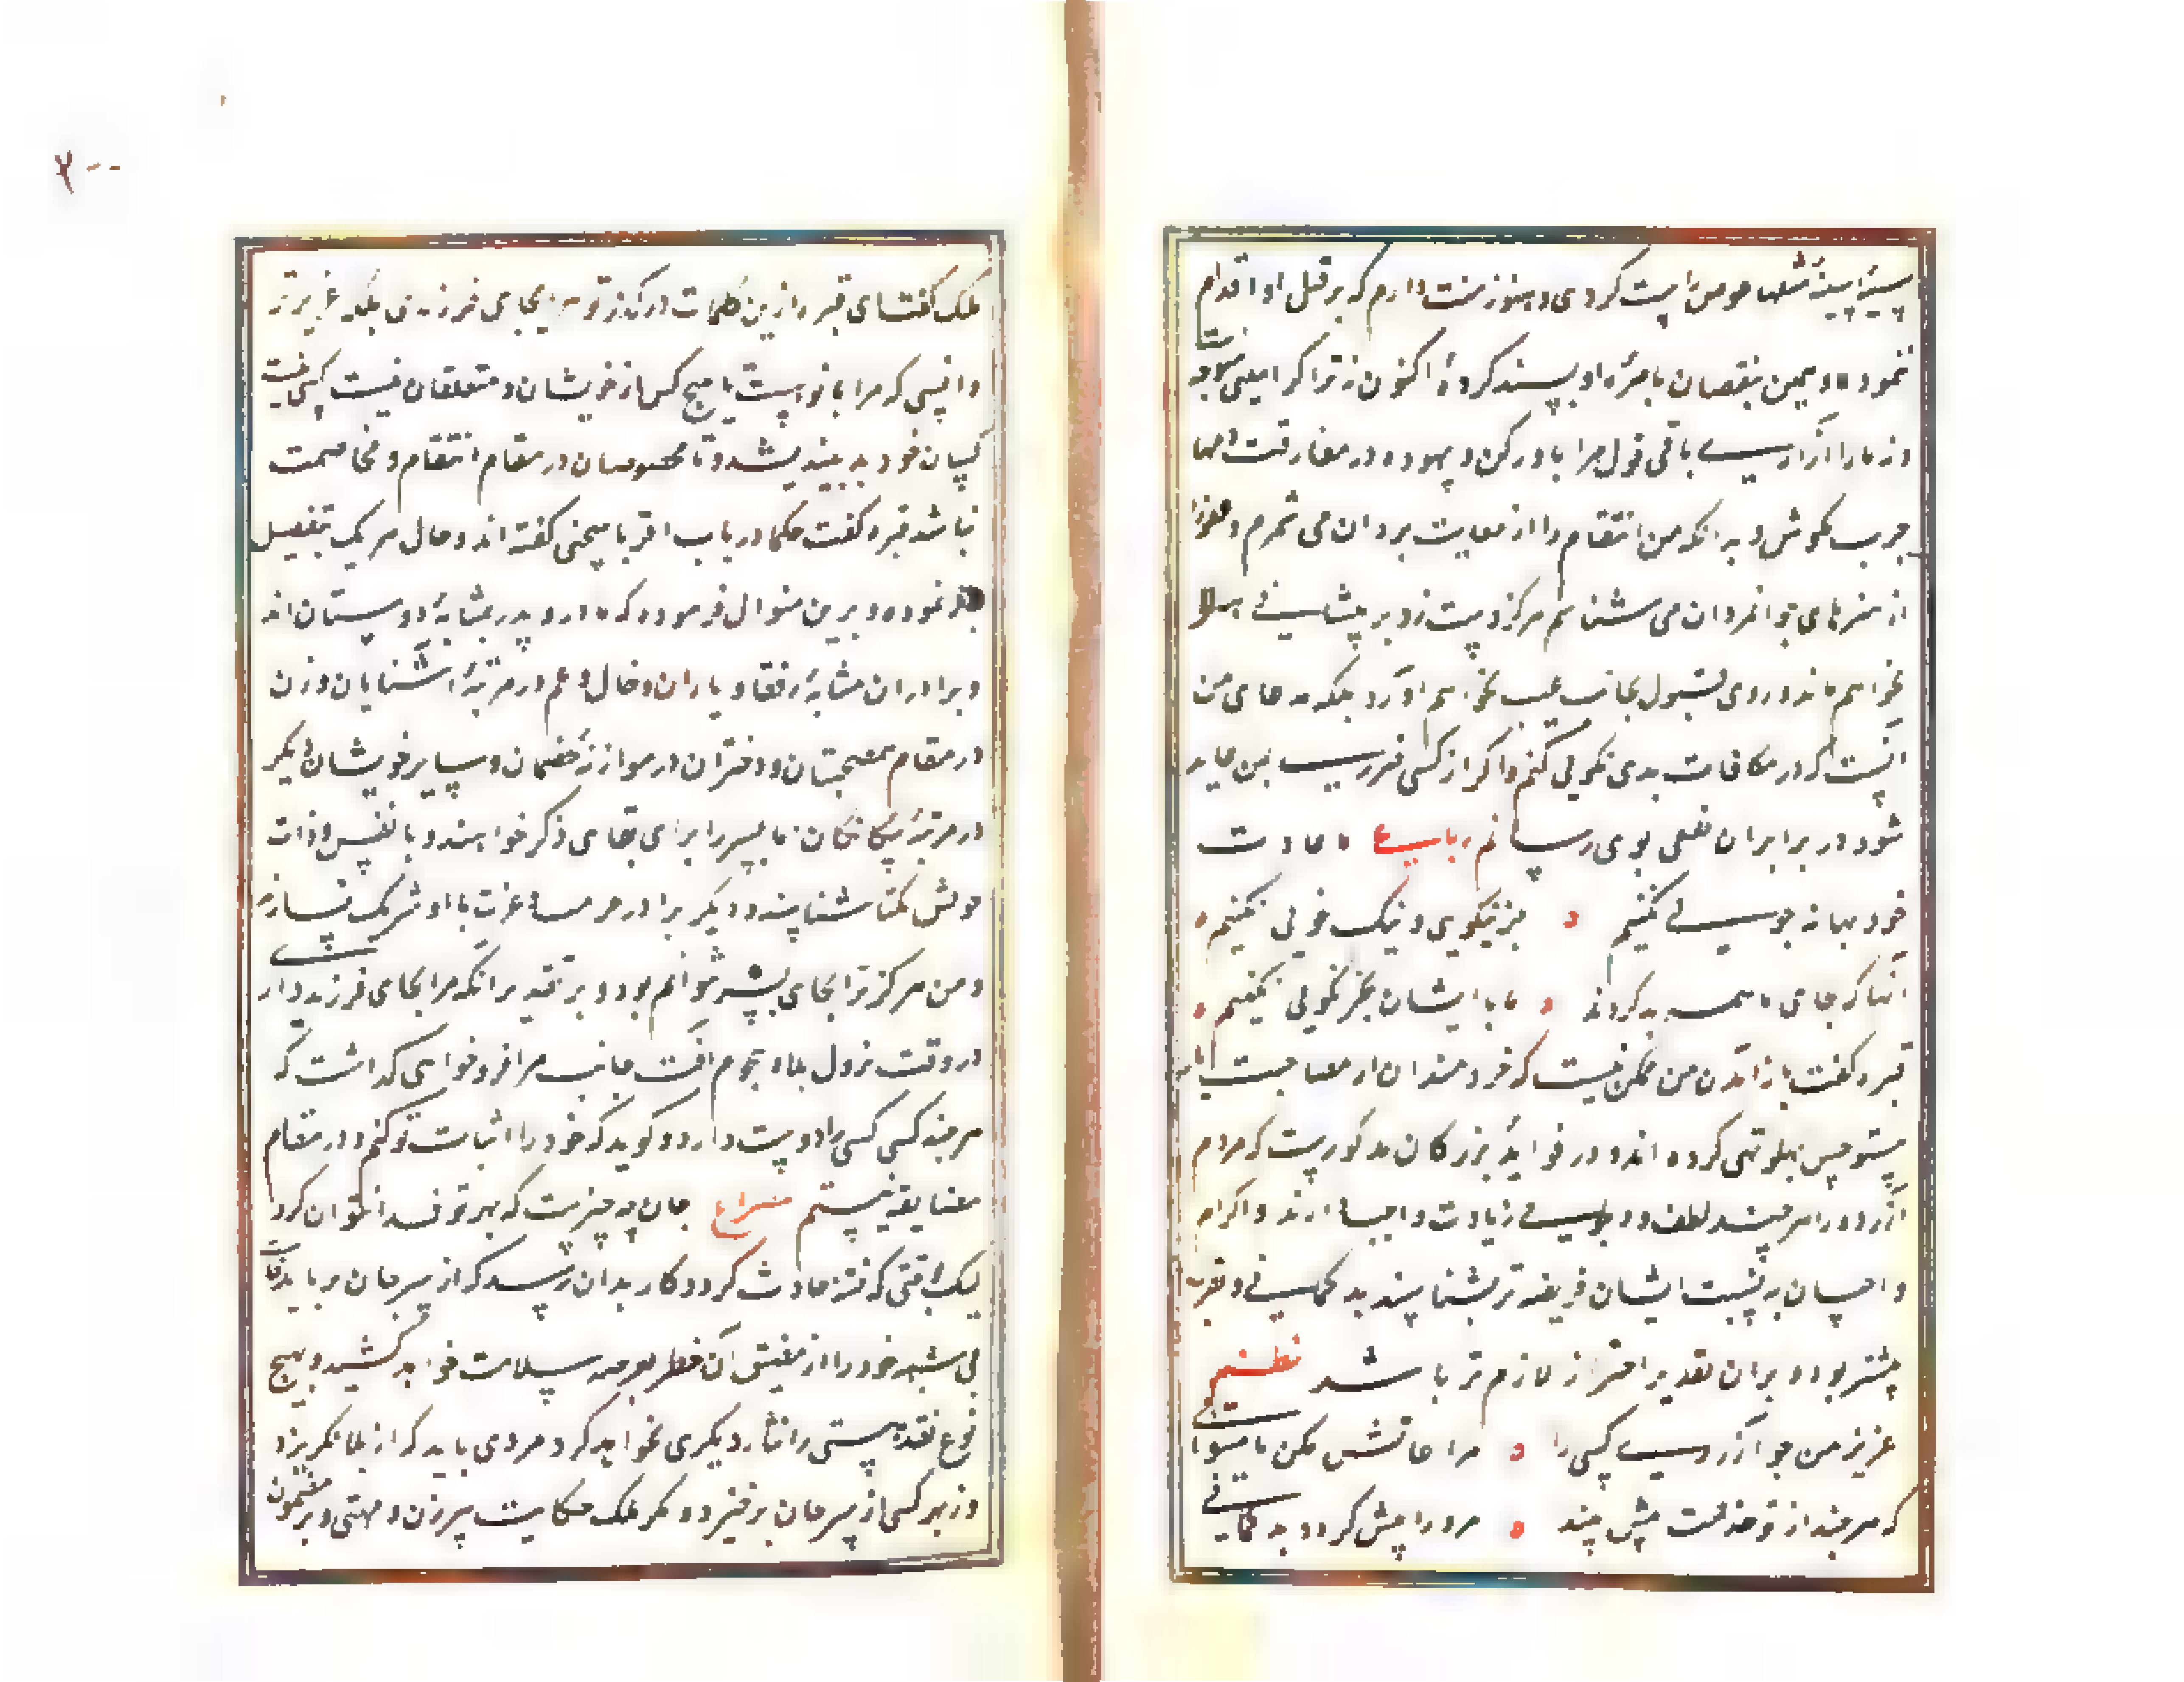 سیئهٔ سیئهٔ مثلها عوض راست کردی و هنوز منت دارم که بر قتل او اقدام
ننموده و بهمین نقصان باصرهٔ او بسند کردهٔ اکنون نه ترا کراهیتی متوجه
و نه ما را آزاری باقی قول مرا باور کن و بیهوده در مفارقت و مهاجرت
مکوش و بدانکه من انتقام را از معایب مردان می شمرم و عفو را
از هنرهای جوانمردان می شناسم هرگز دست رد بر پیشانی هنر
نخواهم ماند و روی قبول بجانب عیب نخواهم آورد بلکه مدعای من
آنست که در مکافات بدی نکویی کنم و اگر از کسی ضرری بمن عاید
شود در برابر آن نفعی بوی رسانم رباعی ما عادت
خود بهانه جویی نکنیم جز نیکویی و نیک خویی نکنیم
آنها که بجای ما همه بد کردند ما با ایشان بجز نکویی نکنیم
قبره گفت باز آمدن من ممکن نیست که خردمندان از مصاحبت یار
مستوحش پهلو تهی کرده اند و در فواید بزرگان مذکورست که مردم
آزرده را هر چند لطف و دلجویی زیادت واجب دارند و اکرام
و احسان به نسبت ایشان فریضه تر شناسند بدگمانی و نفرت
بیشتر بود و بر آن تقدیر احتراز لازم تر باشد نظم
عزیز من چو آزردی کسی را مراعاتش مکن تا میتوانی
که هر چند از تو خدمت بیش بیند مرو را بیش گردد بد گمانی
۲۰۰
ملک گفت ای قبره ازین کلمات درگذر تو مرا بجای فرزندی بلکه عزیزتر
و انسی که مرا با تو است با هیچ کس از خویشان و متعلقان نیست کسی نسبت
کسان خود بد نیندیشد و با مخصوصان در مقام انتقام و مخاصمت
نباشد قبره گفت حکما در باب اقربا سخنی گفته اند و حال هر یک بتفصیل
نموده و برین منوال فرموده که مادر و پدر بمثابهٔ دوستان اند
و برادران مثابهٔ رفقا و یاران و خال و عم در مرتبهٔ آشنایان و زن
در مقام صحبتیان و دختران در موازنهٔ خصمان و سایر خویشان دیگر
در مرتبهٔ بیگانگان اما پسر را برای بقای ذکر خواهند و با نفس و ذات
خویش یکتا شناسند و دیگر برا در عرصهٔ عزت با او شریک نسازند
و من هرگز ترا بجای پسر نتوانم بود و بر تقدیر آنکه مرا بجای فرزند داری
در وقت نزول بلا و هجوم آفت جانب مرا فرو خواهی گذاشت که
هر چند کسی کسی را دوست دارد و گوید که خود را اثبات تو کنم و در مقام
مضایقه نیستم مصراع جان چه چیزست که بهر تو فدا نتوان کرد
لیک وقتی که فتنه حادث گردد و کار بدان رسد که از سر جان بر باید خاست
بی شبهه خود را از مضیق آن خطر بعرصه سلامت خواهد کشید و بهیچ
نوع نقد هستی را نثار دیگری نخواهد کرد مردی باید که از بلا نگریزد
وز بهر کسی از سر جان برخیزد و مگر ملک حکایت پیرزن و مهستی و بر مضمون